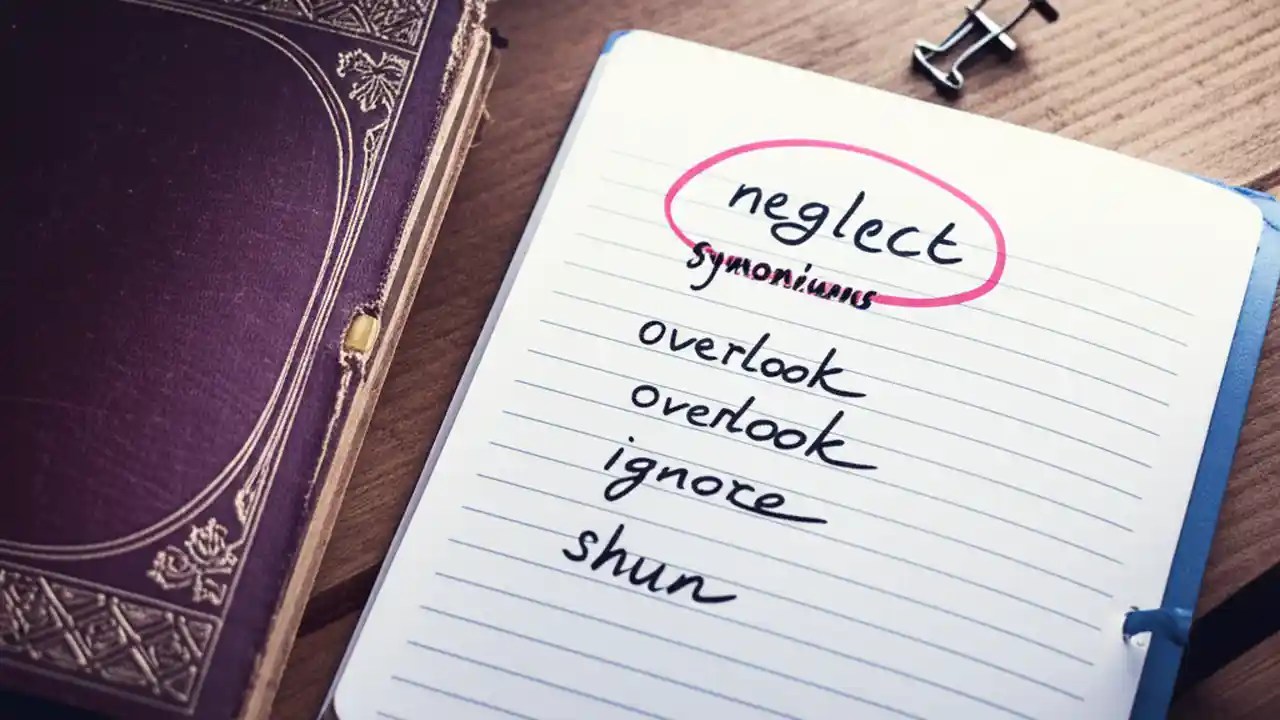 neglect
symoniums
overlook
overlook
ignore
shun